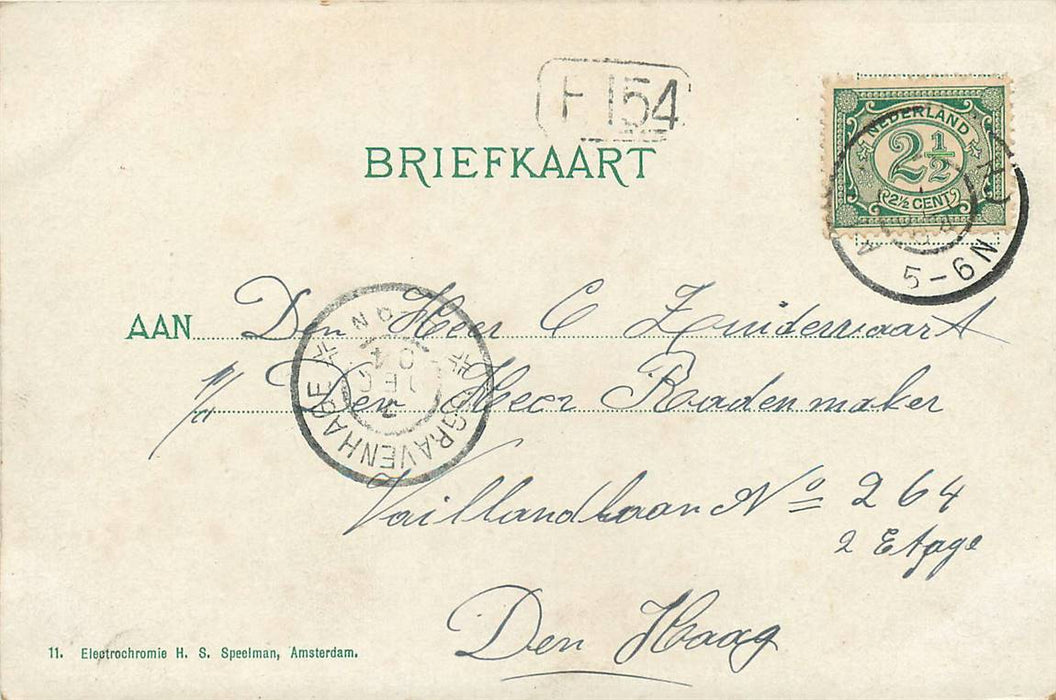 F 154
BRIEFKAART
NEDERLAND
2½
2½ CENT
5-6N
AAN Den Heer C Zuiderwaart
p/a Den Heer Rademaker
'S GRAVENHAGE
Vaillandlaan No 264
2 Etage
Den Haag
11. Electrochromie H. S. Speelman, Amsterdam.